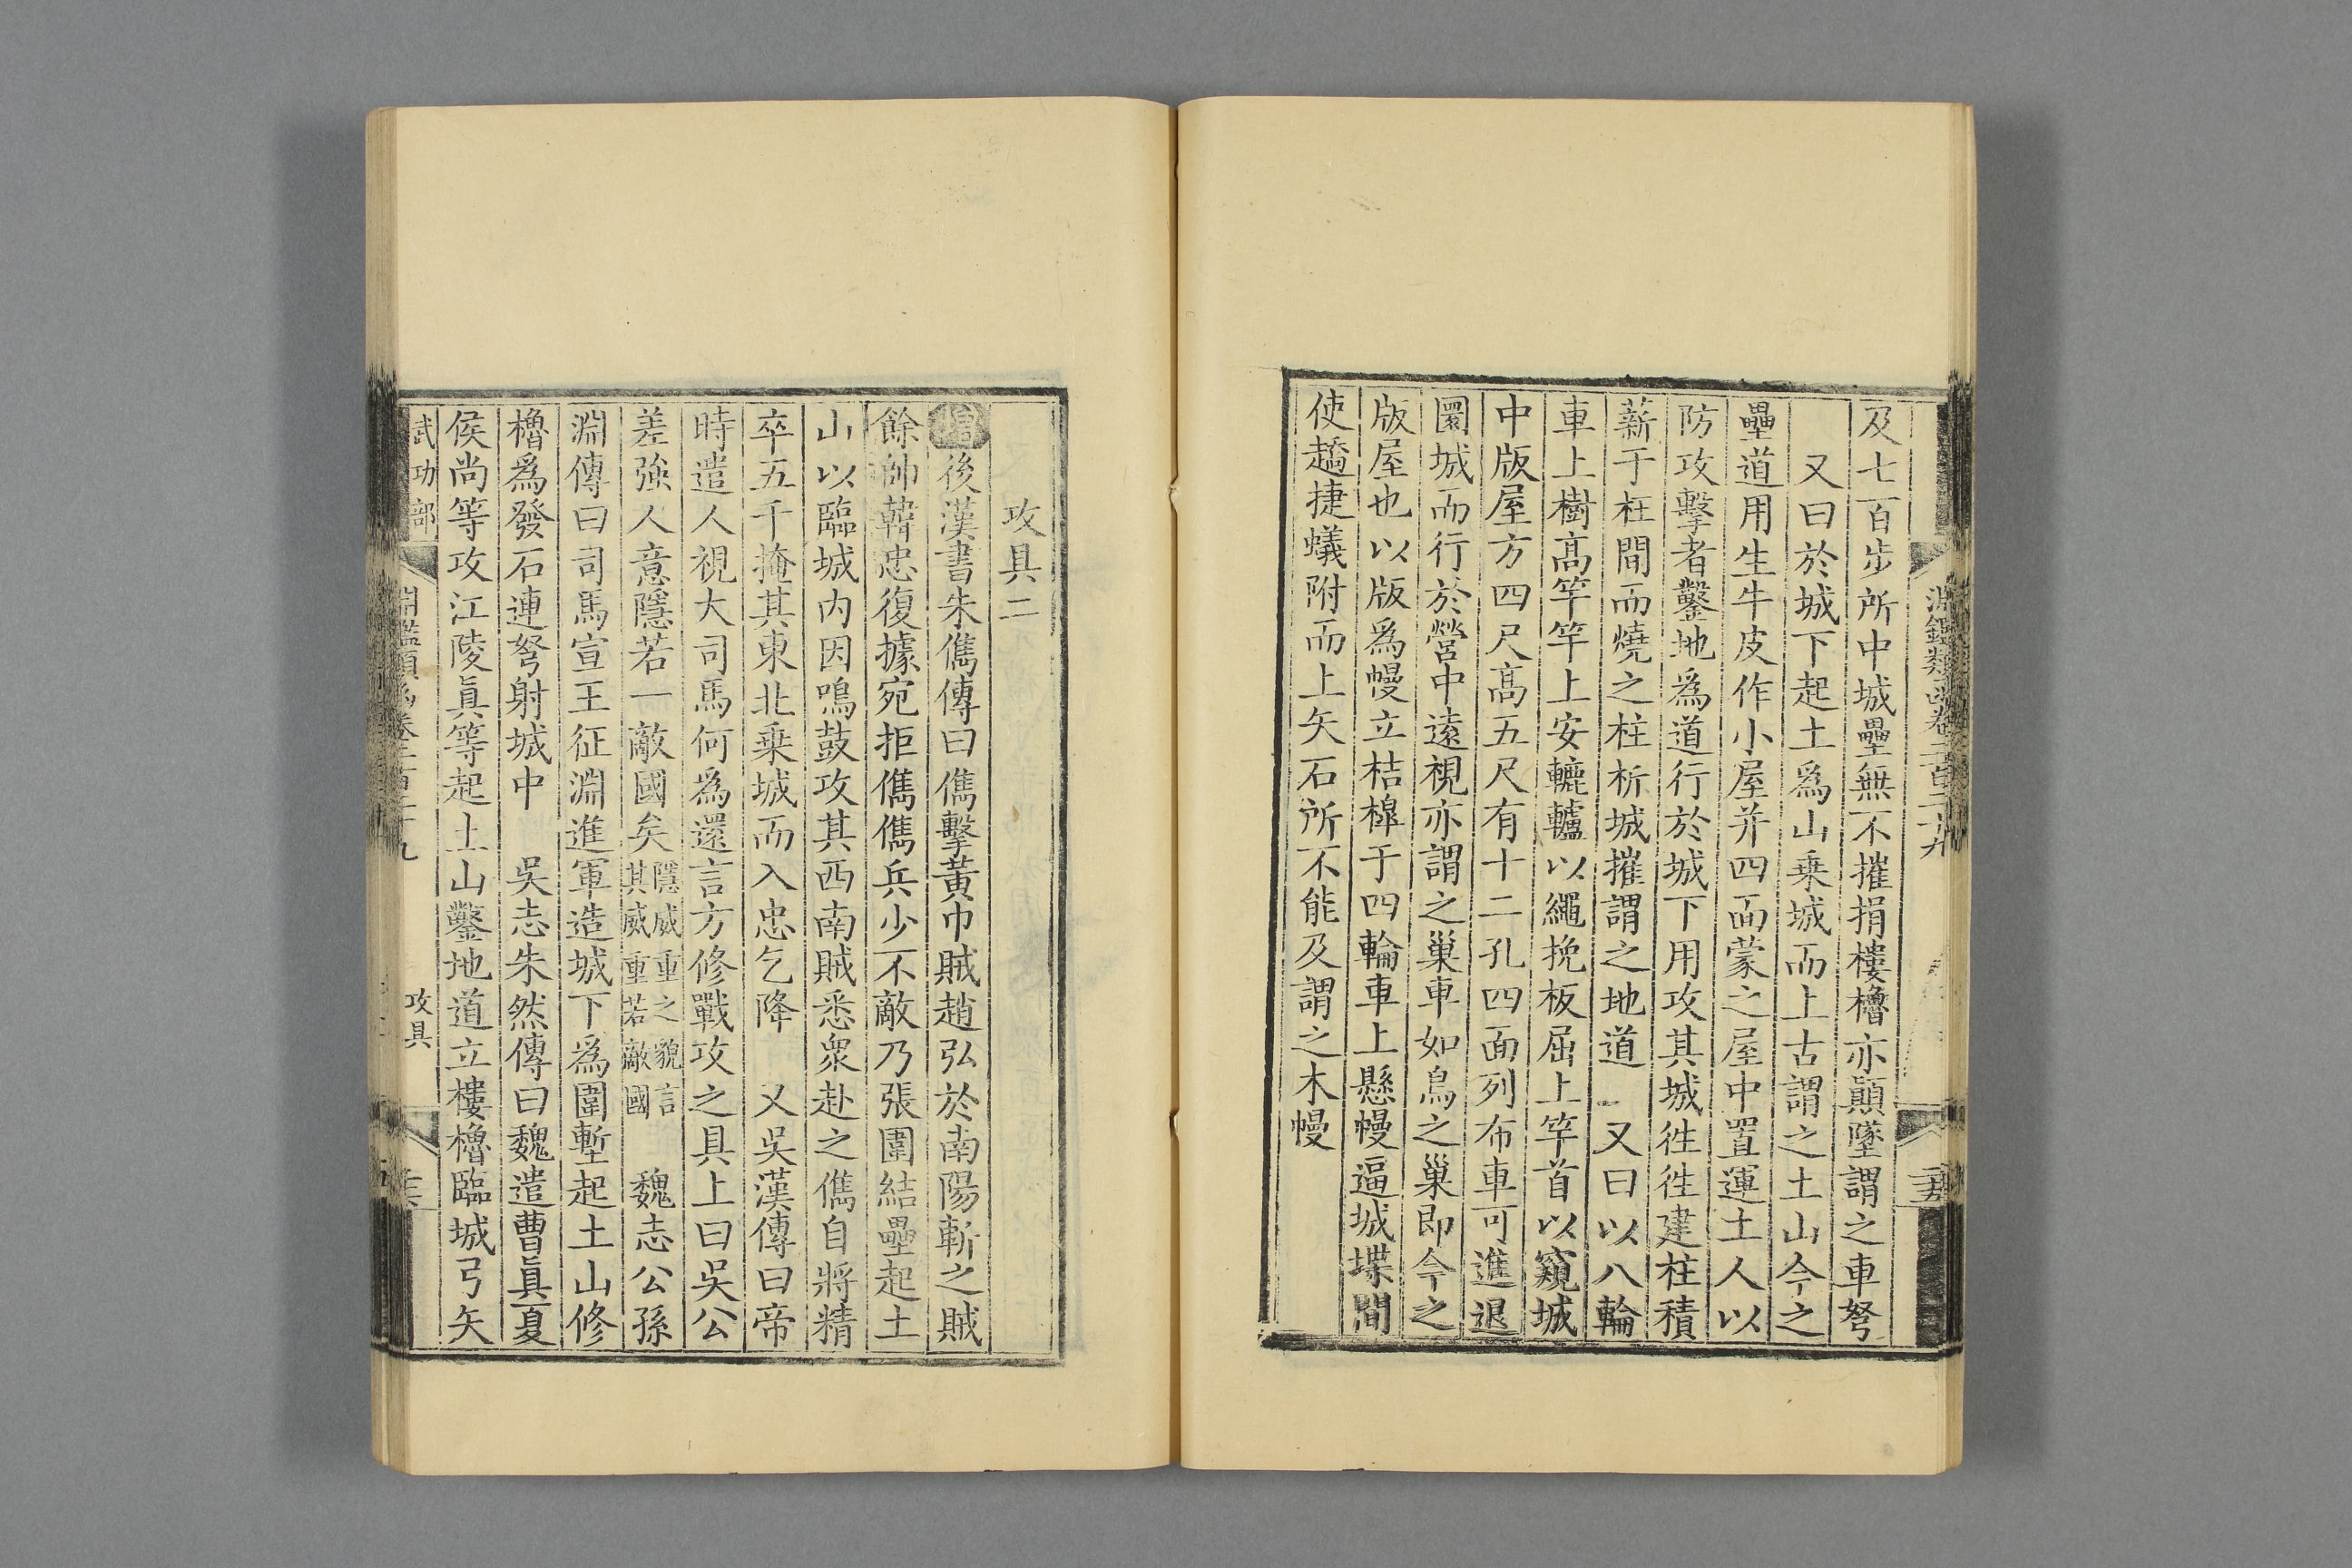 及七百步所中城壘無不摧捐樓櫓亦顚墜謂之車弩
又曰於城下起土爲山乗城而上古謂之土山今之
壘道用生牛皮作小屋并四面蒙之屋中置運土人以
防攻擊者鑿地爲道行於城下用攻其城徃徃建柱積
薪于柱間而燒之柱析城摧謂之地道　又曰以八輪
車上樹高竿竿上安轆轤以繩挽板屋上竿首以窺城
中版屋方四尺高五尺有十二孔四面列布車可進退
圜城而行於營中遠視亦謂之巢車如鳥之巢即今之
版屋也以版爲幔立桔槹于四輪車上懸幔逼城堞間
使趫捷蟻附而上矢石所不能及謂之木幔
淵鑑類函卷二百二十九
攻具二
增後漢書朱儁傳曰儁擊黃巾賊趙弘於南陽斬之賊
餘帥韓忠復據宛拒儁儁兵少不敵乃張圍結壘起土
山以臨城内因鳴鼓攻其西南賊悉衆赴之儁自將精
卒五千掩其東北乗城而入忠乞降　又吳漢傳曰帝
時遣人視大司馬何爲還言方修戰攻之具上曰吳公
差強人意隱若一敵國矣隱威重之貌言其威重若敵國　魏志公孫
淵傳曰司馬宣王征淵進軍造城下爲圍塹起土山修
櫓爲發石連弩射城中　吳志朱然傳曰魏遣曹眞夏
侯尚等攻江陵眞等起土山鑿地道立樓櫓臨城弓矢
武功部
攻具